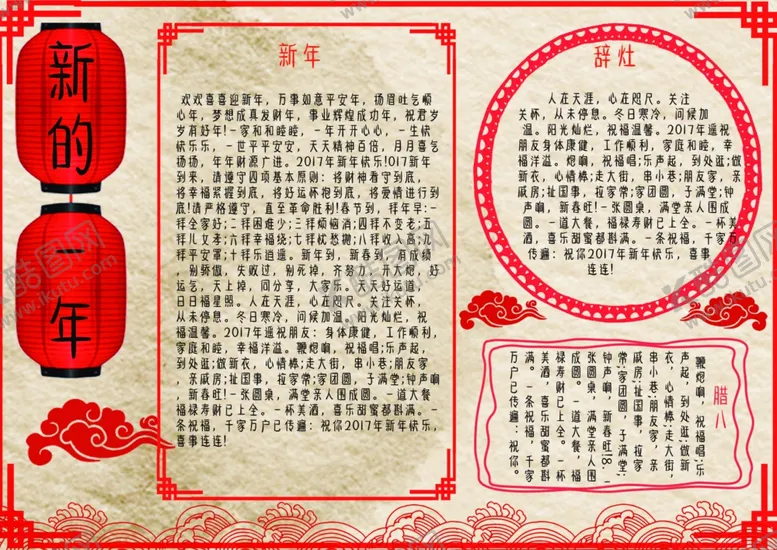 新的
一年
新年
欢欢喜喜迎新年，万事如意平安年，扬眉吐气顺
心年，梦想成真发财年，事业辉煌成功年，祝君岁
岁有好年！一家和和睦睦，一年开开心心，一生快
快乐乐，一世平平安安，天天精神百倍，月月喜气
扬扬，年年财源广进。2017年新年快乐！017新年
到来，请遵守四项基本原则：将财神看守到底，
将幸福紧握到底，将好运怀抱到底，将爱情进行到
底！请严格遵守，直至革命胜利！春节到，拜年早：一
拜全家好；二拜困难少；三拜烦恼消；四拜不变老；五
拜儿女孝；六拜幸福绕；七拜忧愁抛；八拜收入高；九
拜平安罩；十拜乐逍遥。新年到，新春到，有成绩
，别骄傲，失败过，别死掉，齐努力，开大炮，好
运气，天上掉，同分享，大家乐。天天好运道，
日日福星照。人在天涯，心在咫尺。关注关杯，
从未停息。冬日寒冷，问候加温。阳光灿烂，祝
福温馨。2017年遥祝朋友：身体康健，工作顺利，
家庭和睦，幸福洋溢。鞭炮啊，祝福唱；乐声起，
到处逛；做新衣，心情棒；走大街，串小巷；朋友家，
亲戚房；扯国事，拉家常；家团圆，子满堂；钟声啊，
新春旺！一张圆桌，满堂亲人围成圆。一道大餐
福禄寿财已上全。一杯美酒，喜乐甜蜜都斟满。一
条祝福，千家万户已传遍：祝你2017年新年快乐，
喜事连连！
辞灶
人在天涯，心在咫尺。关注
关杯，从未停息。冬日寒冷，问候加
温。阳光灿烂，祝福温馨。2017年遥祝
朋友：身体康健，工作顺利，家庭和睦，幸
福洋溢。炮啊，祝福唱；乐声起，到处逛；做
新衣，心情棒；走大街，串小巷；朋友家，亲
戚房；扯国事，拉家常；家团圆，子满堂；钟
声啊，新春旺！一张圆桌，满堂亲人围成
圆。一道大餐，福禄寿财已上全。一杯美
酒，喜乐甜蜜都斟满。一条祝福，千家万
户已传遍：祝你2017年新年快乐，喜事
连连！
腊八
鞭炮啊，祝福唱；乐
声起，到处逛；做新
衣，心情棒；走大街，
串小巷；朋友家，亲
戚房；扯国事，拉家
常；家团圆，子满堂；
钟声啊，新春旺！8.一
张圆桌，满堂亲人围
成圆。一道大餐，福
禄寿财已上全。一杯
美酒，喜乐甜蜜都斟
满。一条祝福，千家
万户已传遍：祝你。